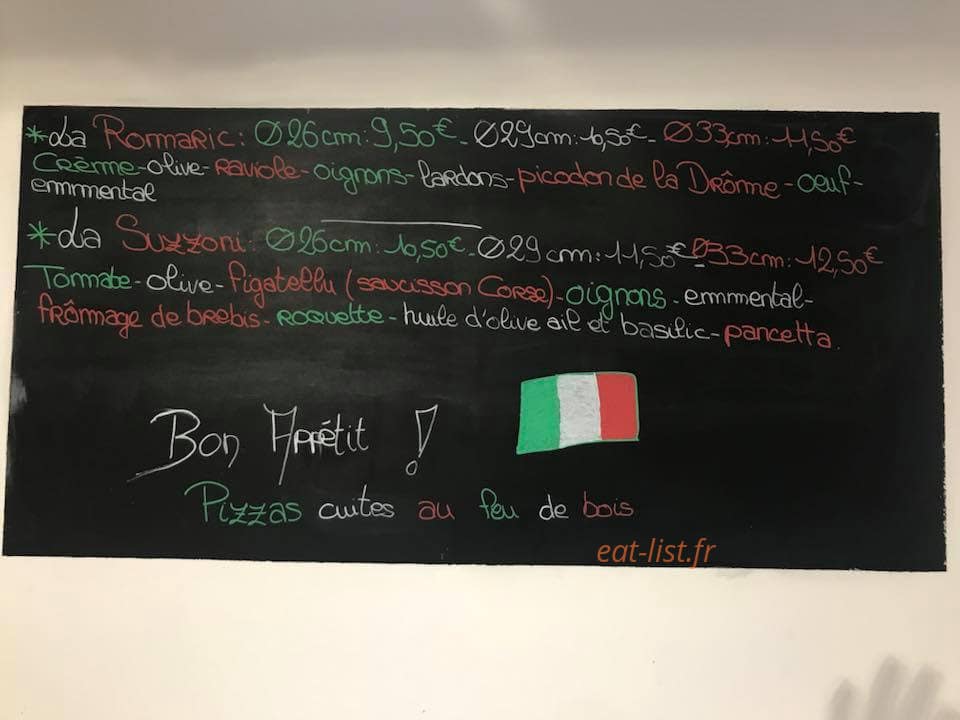 *La Romaric: Ø26cm: 9,50€ - Ø29cm: 10,50€ - Ø33cm: 11,50€
Crème-olive-raviole-oignons-lardons-picodon de la Drôme-oeuf-
emmental
*La Suzzoni: Ø26cm: 10,50€ - Ø29cm: 11,50€ - Ø33cm: 12,50€
Tomate-olive-figatellu (saucisson Corse)-oignons-emmental-
frômage de brebis-roquette-huile d'olive ail et basilic-pancetta.
Bon Appétit !
Pizzas cuites au feu de bois
eat-list.fr